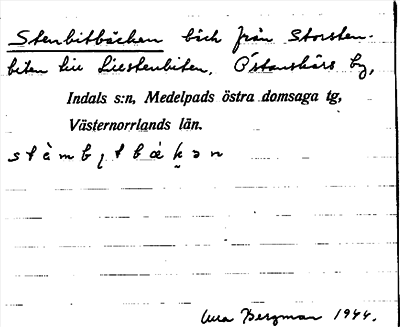 Stenbitbäcken bäck från Storsten-
biten till Lillstenbiten, Östanskärs by,
Indals s:n, Medelpads östra domsaga tg,
Västernorrlands län.
Bergman 1944.